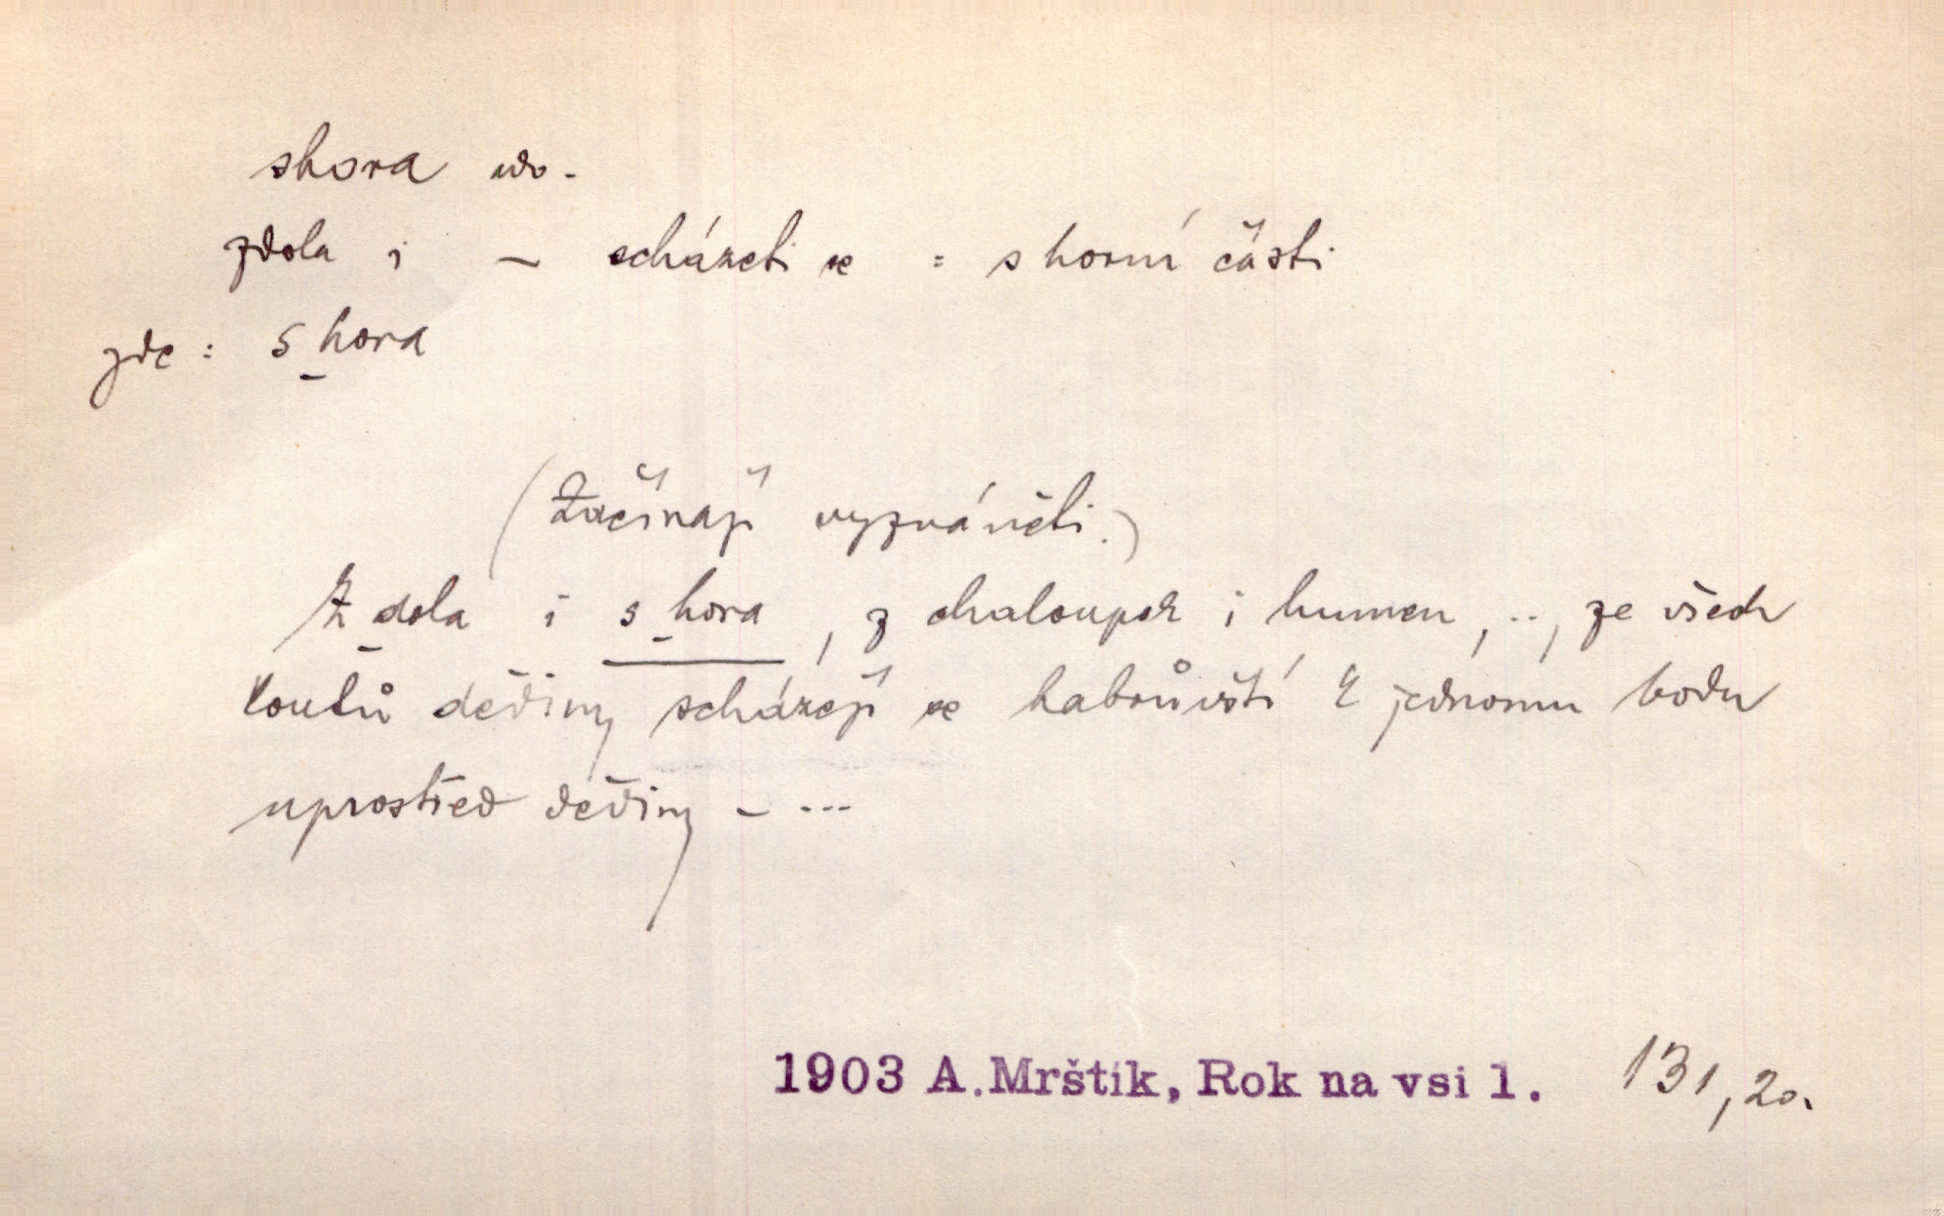 shora adv.
zdola i ~ scházeti se = s horní části
zde: s hora
(Začínají vyzváněti.)
Z dola i s hora, z chaloupek i humen, .., ze všech
koutů dědiny scházejí se habrůvští k jednomu bodu
uprostřed dědiny - ...
1903 A. Mrštík, Rok na vsi 1. 131,20.